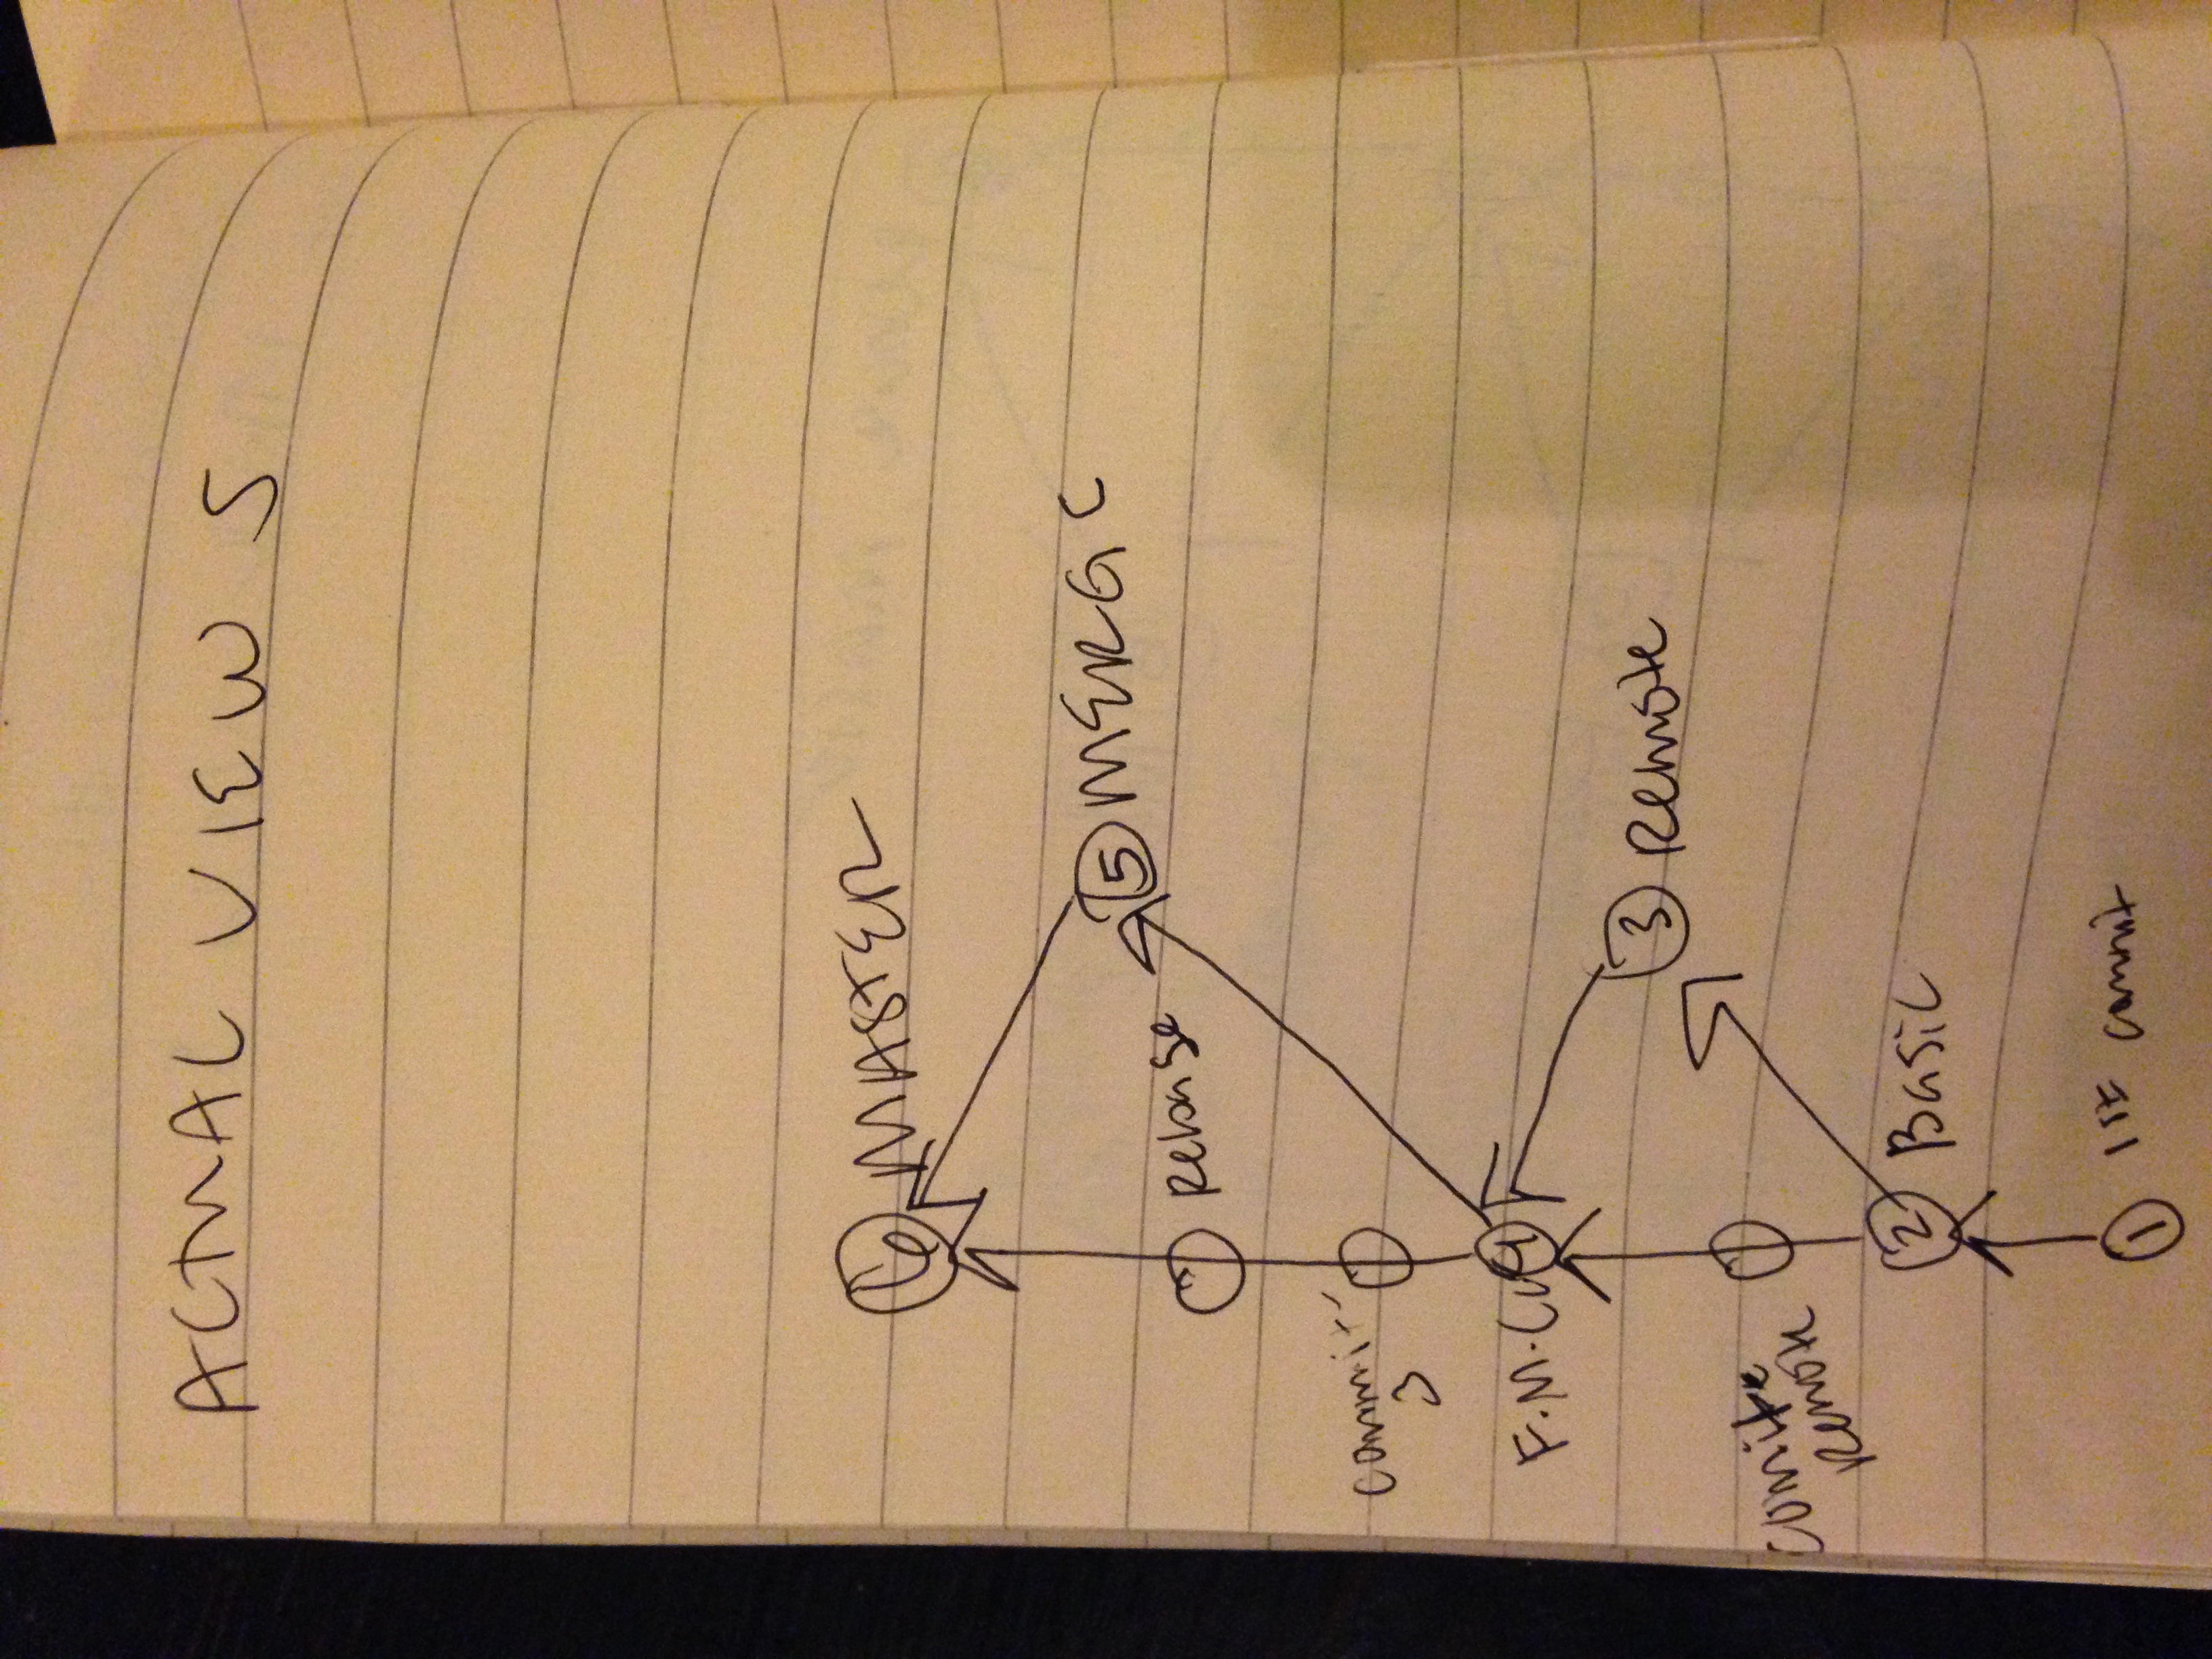 ACTUAL VIEWS
6 MASTER
5 MERGE
Rebase
commit
3
F.M. 4
3 Remote
Remote
2 Basic
1 1st commit